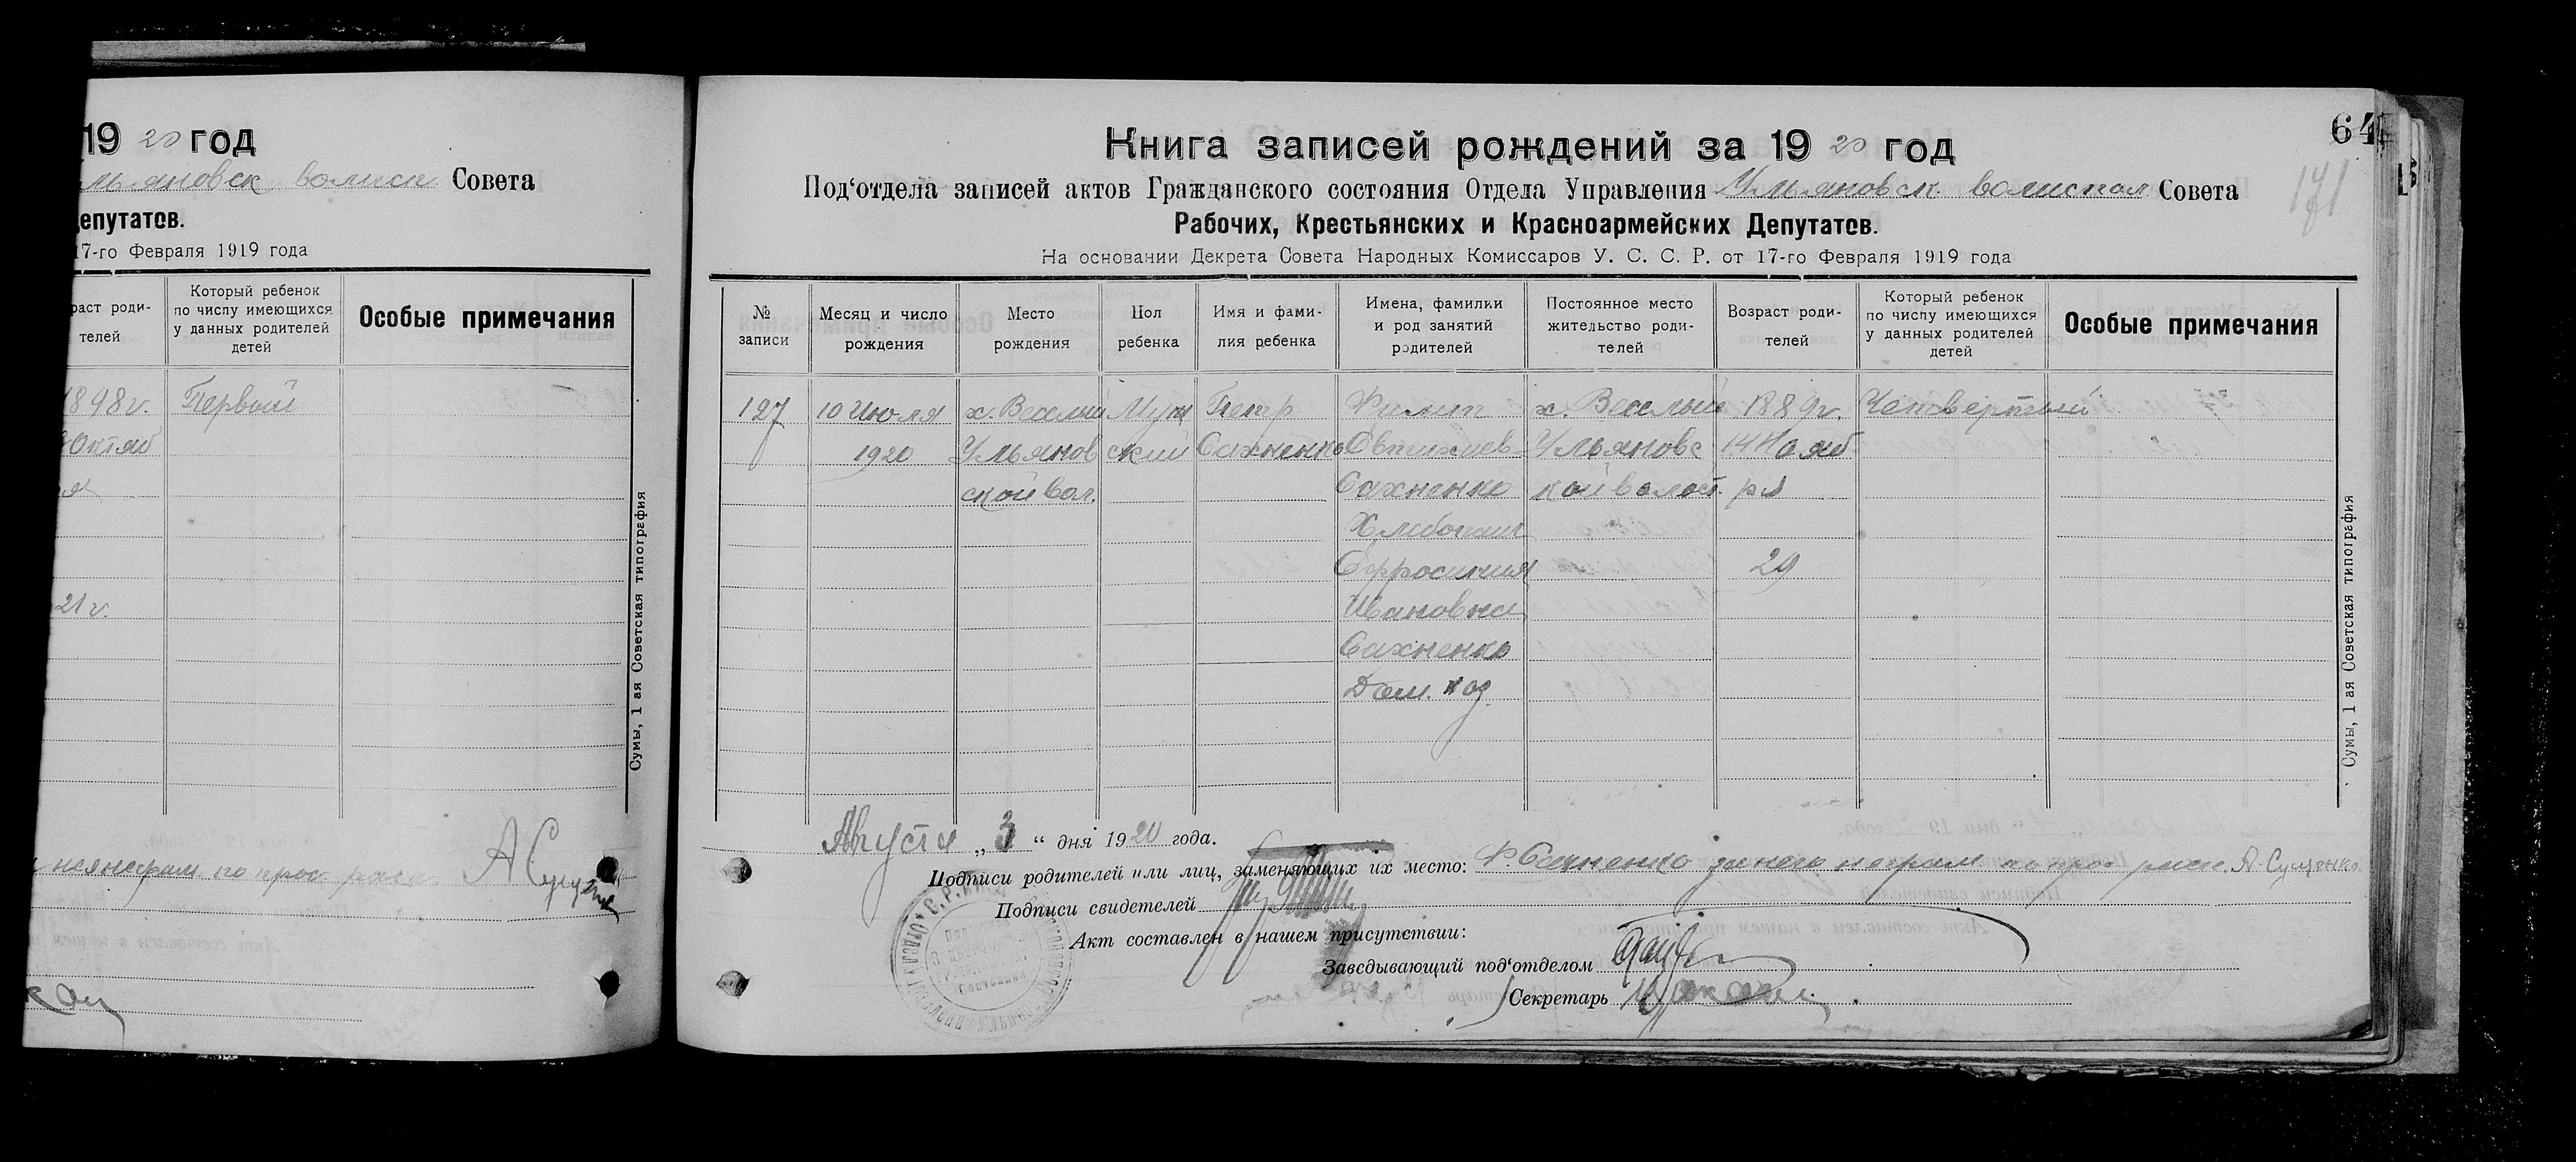 19 20 год
льяновск волисп. Совета
депутатов.
17-го Февраля 1919 года
раст роди-
телей
Который ребенок
по числу имеющихся
у данных родителей
детей
Особые примечания
1898г. Первый
Октяб
я
21 г.
Сумы, 1 ая Советская типография
неграм. по прос. расп.
64
171
Книга записей рождений за 19 20 год
Под‘отдела записей актов Гражданского состояния Отдела Управления Ульяновск. волиспол. Совета
Рабочих, Крестьянских и Красноармейских Депутатов.
На основании Декрета Совета Народных Комиссаров У. С. С. Р. от 17-го Февраля 1919 года
№
записи
Месяц и число
рождения
Место
рождения
Пол
ребенка
Имя и фами-
лия ребенка
Имена, фамилии
и род занятий
родителей
Постоянное место
жительство роди-
телей
Возраст роди-
телей
Который ребенок
по числу имеющихся
у данных родителей
детей
Особые примечания
127 10 Июля х. Веселый Муж Петр Филип х. Веселый 1889г. Четвертый
1920 Ульянов ский Сахненко Овтихиев Ульяновс 14 Нояб
ской вол. Сахненко кой волост. ря
Хлебопаш
Ефросиния 29
Ивановна
Сахненко
Дом. хоз.
Сумы, 1 ая Советская типография
Августа „ 3 “ дня 1920 года.
Подписи родителей или лиц, заменяющих их место: Ф. Сахненко за него неграм. по прос. расп. А. Сущенко
Подписи свидетелей
Акт составлен в нашем присутствии:
Заведывающий под‘отделом
Секретарь